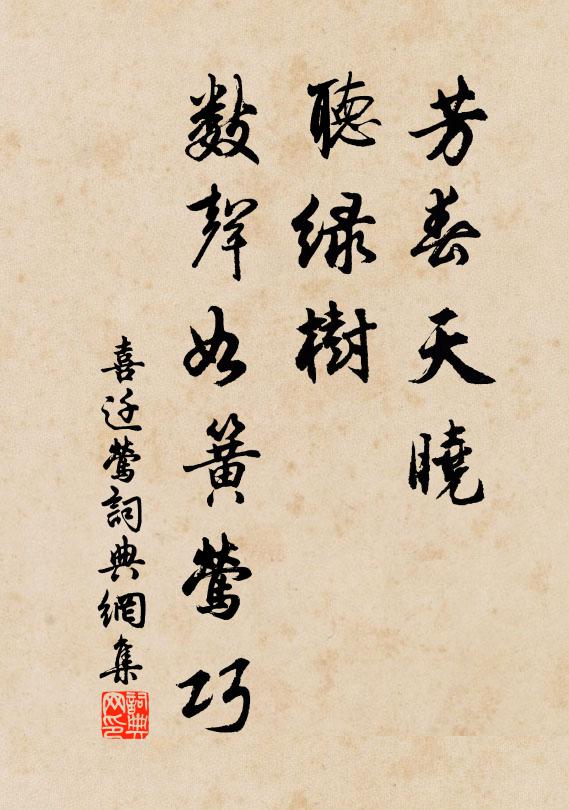 芳春天曉
聽綠樹
數聲如簧鶯巧
喜迁鶯詞典網集
詞典网印